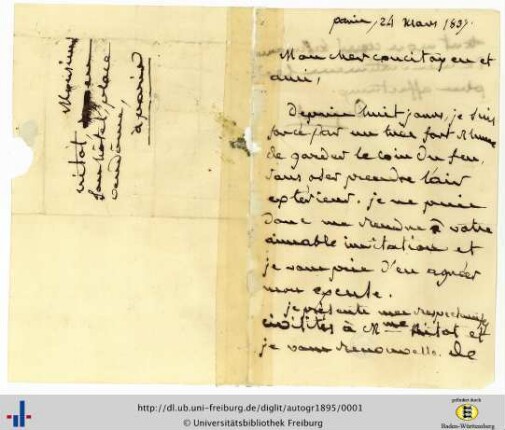 Monsieur
nitot
son hôtel, place
vendôme,
à paris
paris, 24 mars 1837.
Mon cher concitoyen et
ami,
Depuis huit jours, je suis
forcé par un très fort rhume
de garder le coin du feu,
sans oser prendre l'air
extérieur. je ne puis
donc me rendre à votre
aimable invitation et
je vous prie d'en agréer
mon excuse.
je présente mes respectueuses
civilités à Mme nitot et
je vous renouvelle. de
http://dl.ub.uni-freiburg.de/diglit/autogr1895/0001
© Universitätsbibliothek Freiburg
gefördert durch
Baden-Württemberg